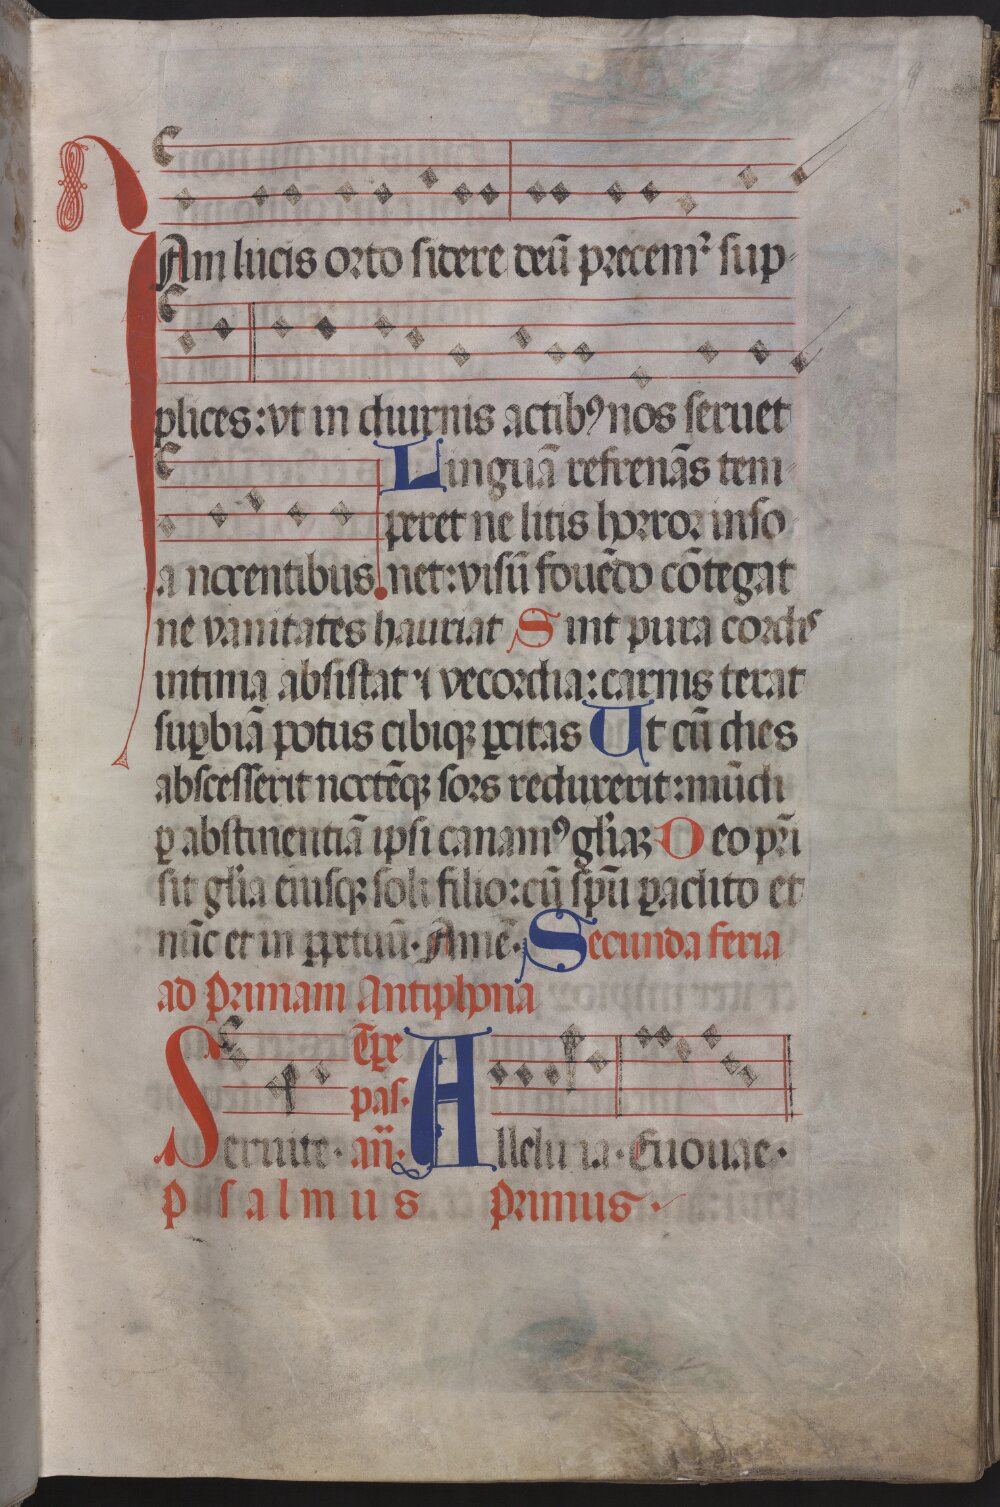 Iam lucis orto sidere deū precemꝛ sup-
plices: vt in diurnis actibꝰ nos seruet
Linguā refrenās tem-
peret ne litis horror inso
a nocentibus. net: visū fouēdo cōtegat
ne vanitates hauriat Sint pura cordis
intima absistat ⁊ vecordia: carnis terat
suꝑbiā potus cibiqꝫ ꝑcitas Ut cū dies
abscesserit noctēqꝫ sors reduxerit: mūdi
ꝑ abstinentiā ipsi canamꝰ gl̄iaꝫ Deo pr̄i
sit gl̄ia eiusqꝫ soli filio: cū sp̄u ꝑaclito et
nūc et in ꝑpetuū. Amē. Secunda feria
ad Primam Antiphona
Seruite. Tp̄e pas. an̄. Alleluia. Euouae.
Psalmus Primus.